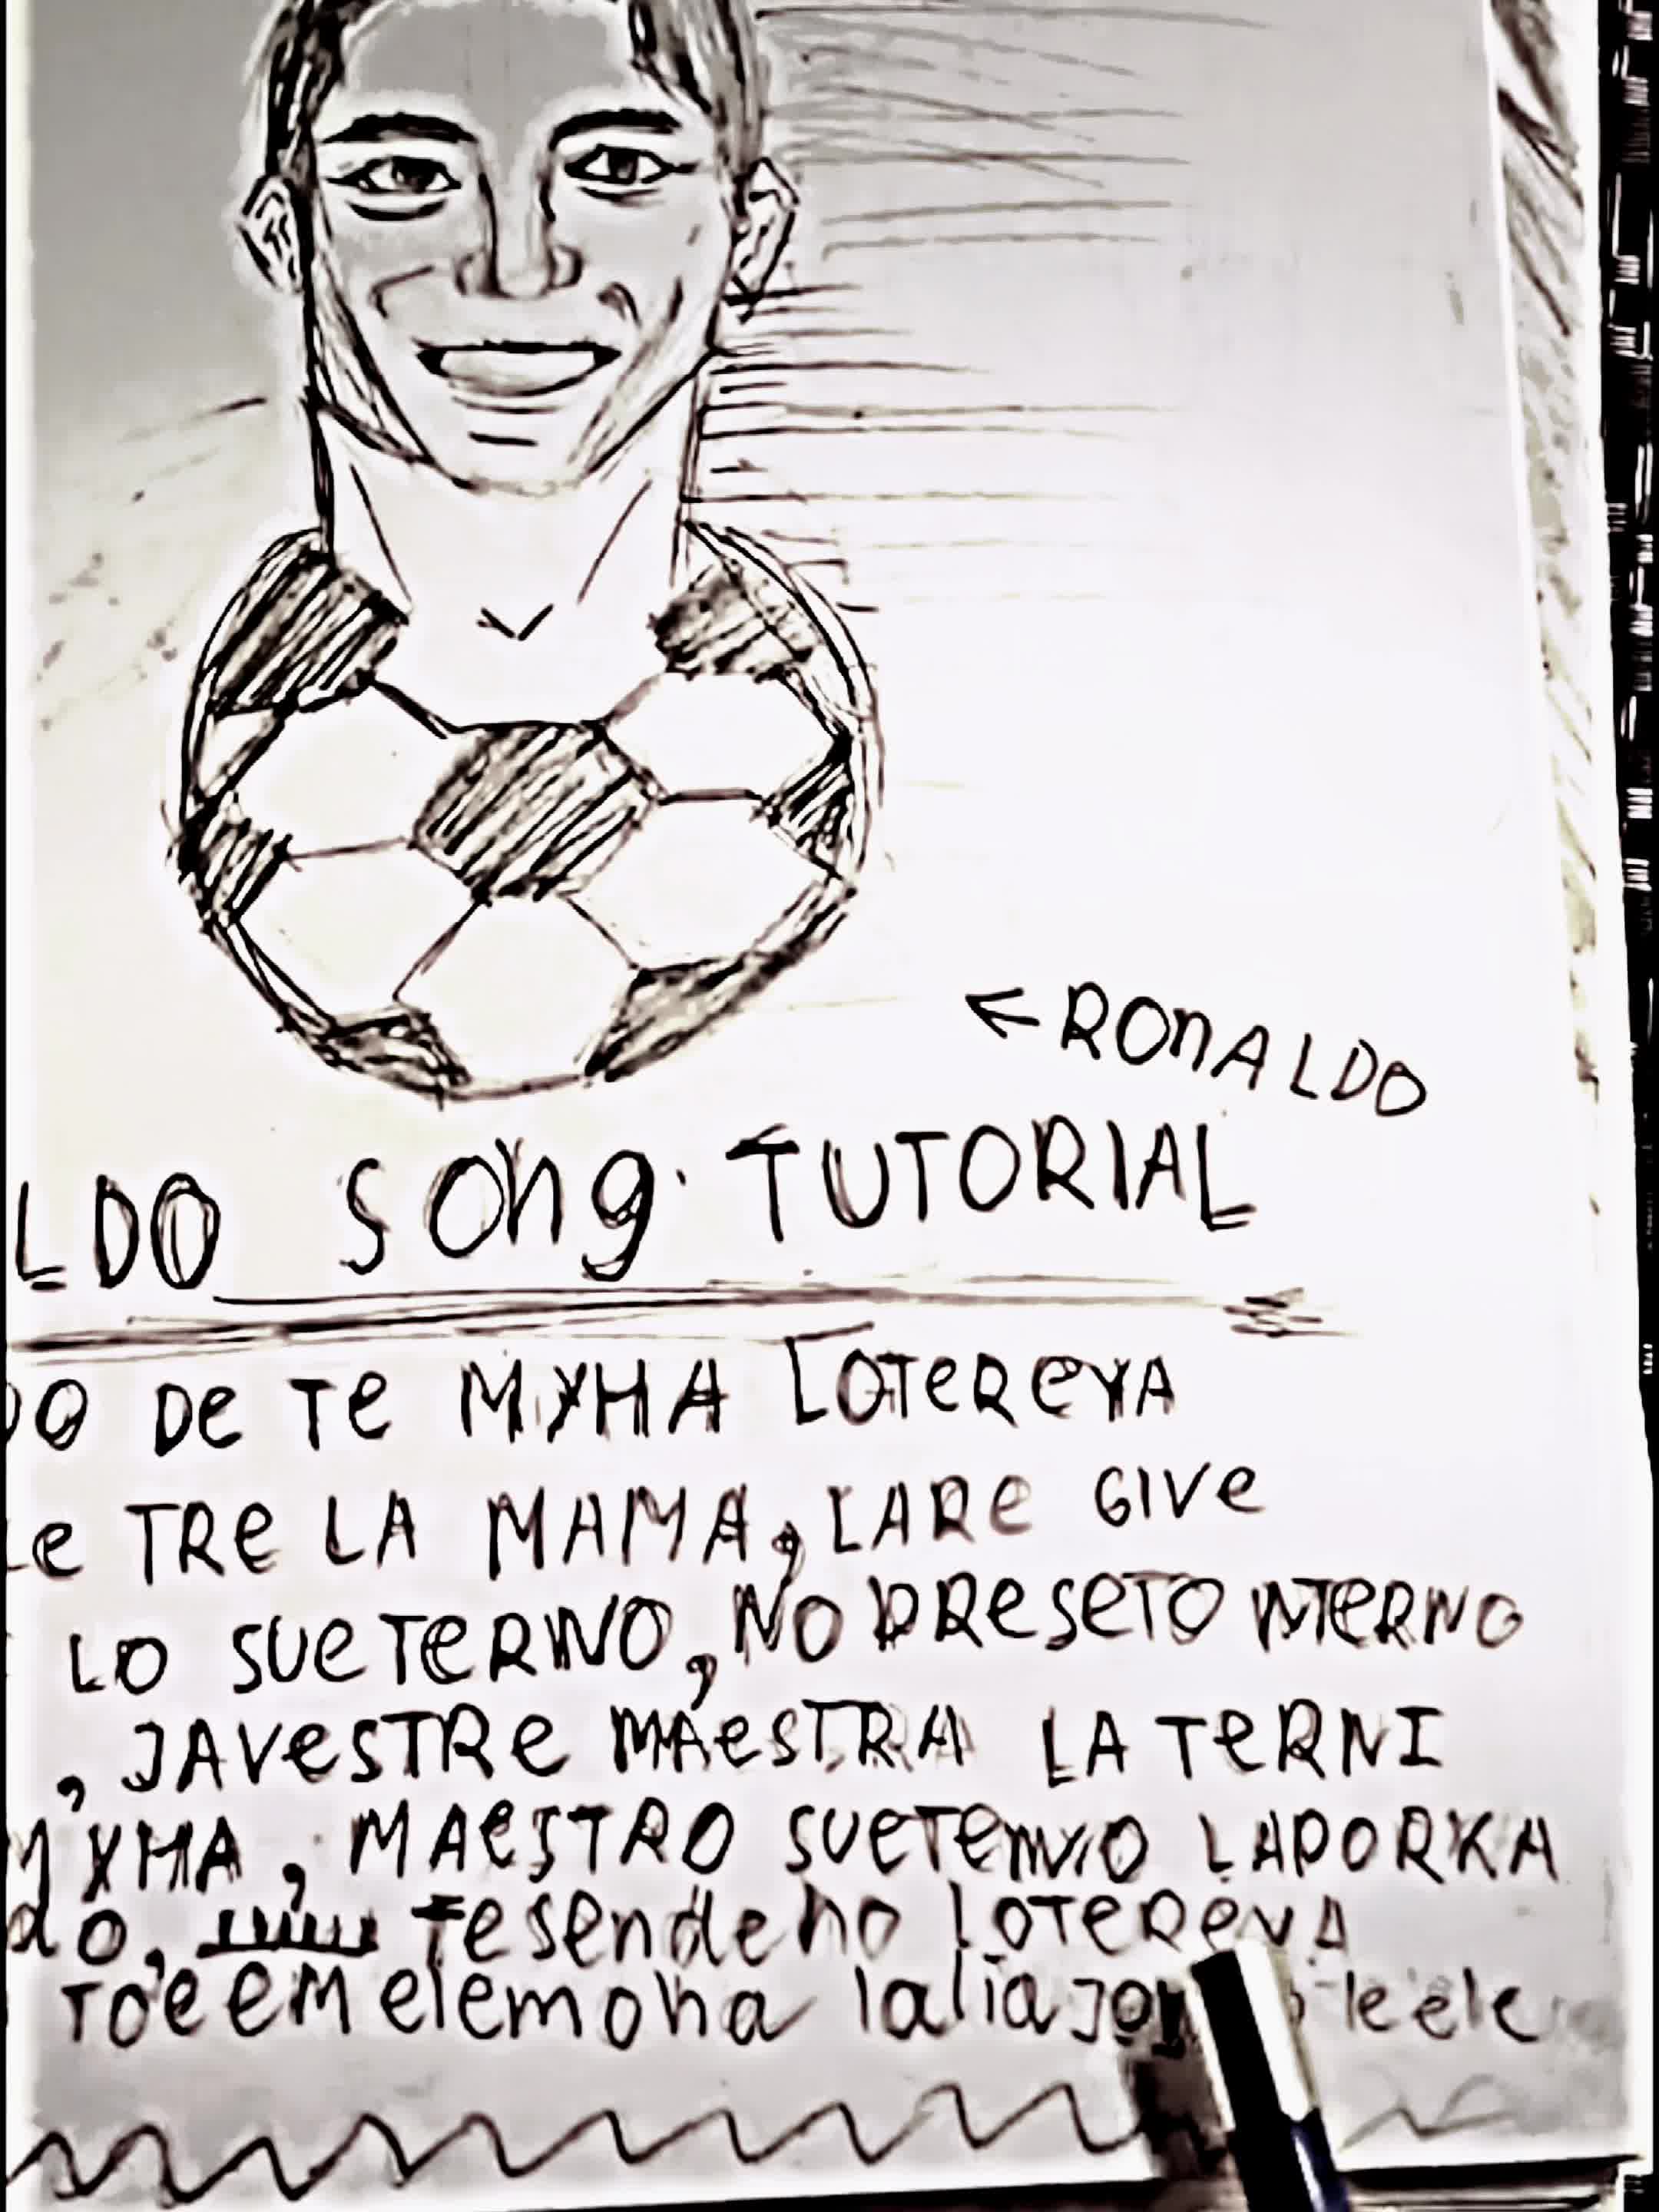 ← RONALDO
LDO SOng. TUTORIAL
DO De Te MYHA LOTEREYA
Le TRe LA MAMA, LARe GIVe
LO SUeTERNO, NO PReSeTO INTERNO
, JAVeSTRe MAeSTRA LA TeRNI
MYHA, MAeSTRO SUeTeRNO LAPORKA
do, Tesendeho LoTEReYA
Toe eM elemoha lalia leele